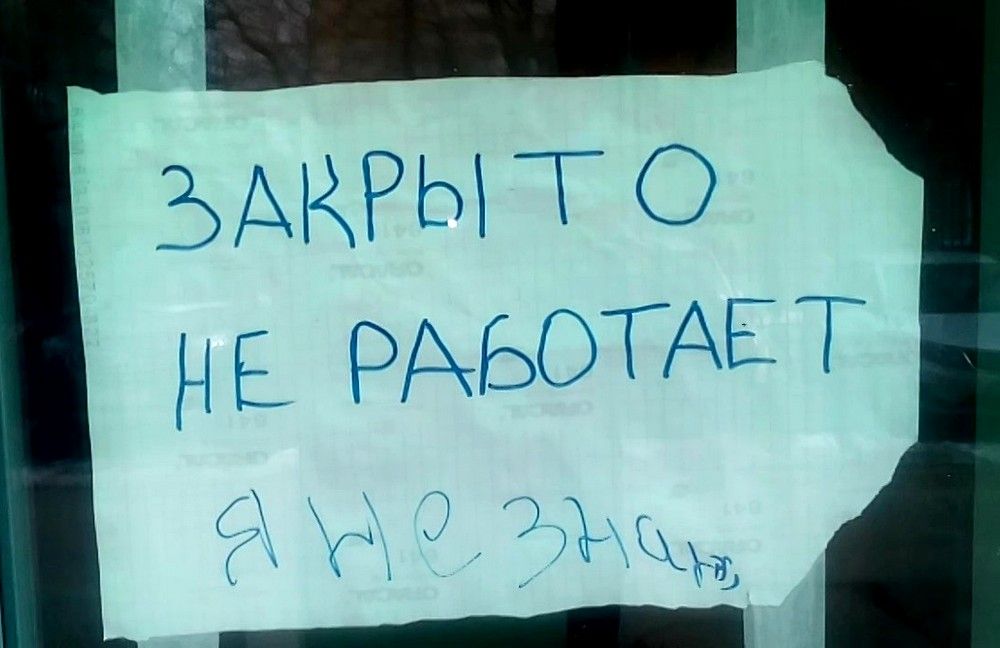 ЗАКРЫТО
НЕ РАБОТАЕТ
Я не знаю,